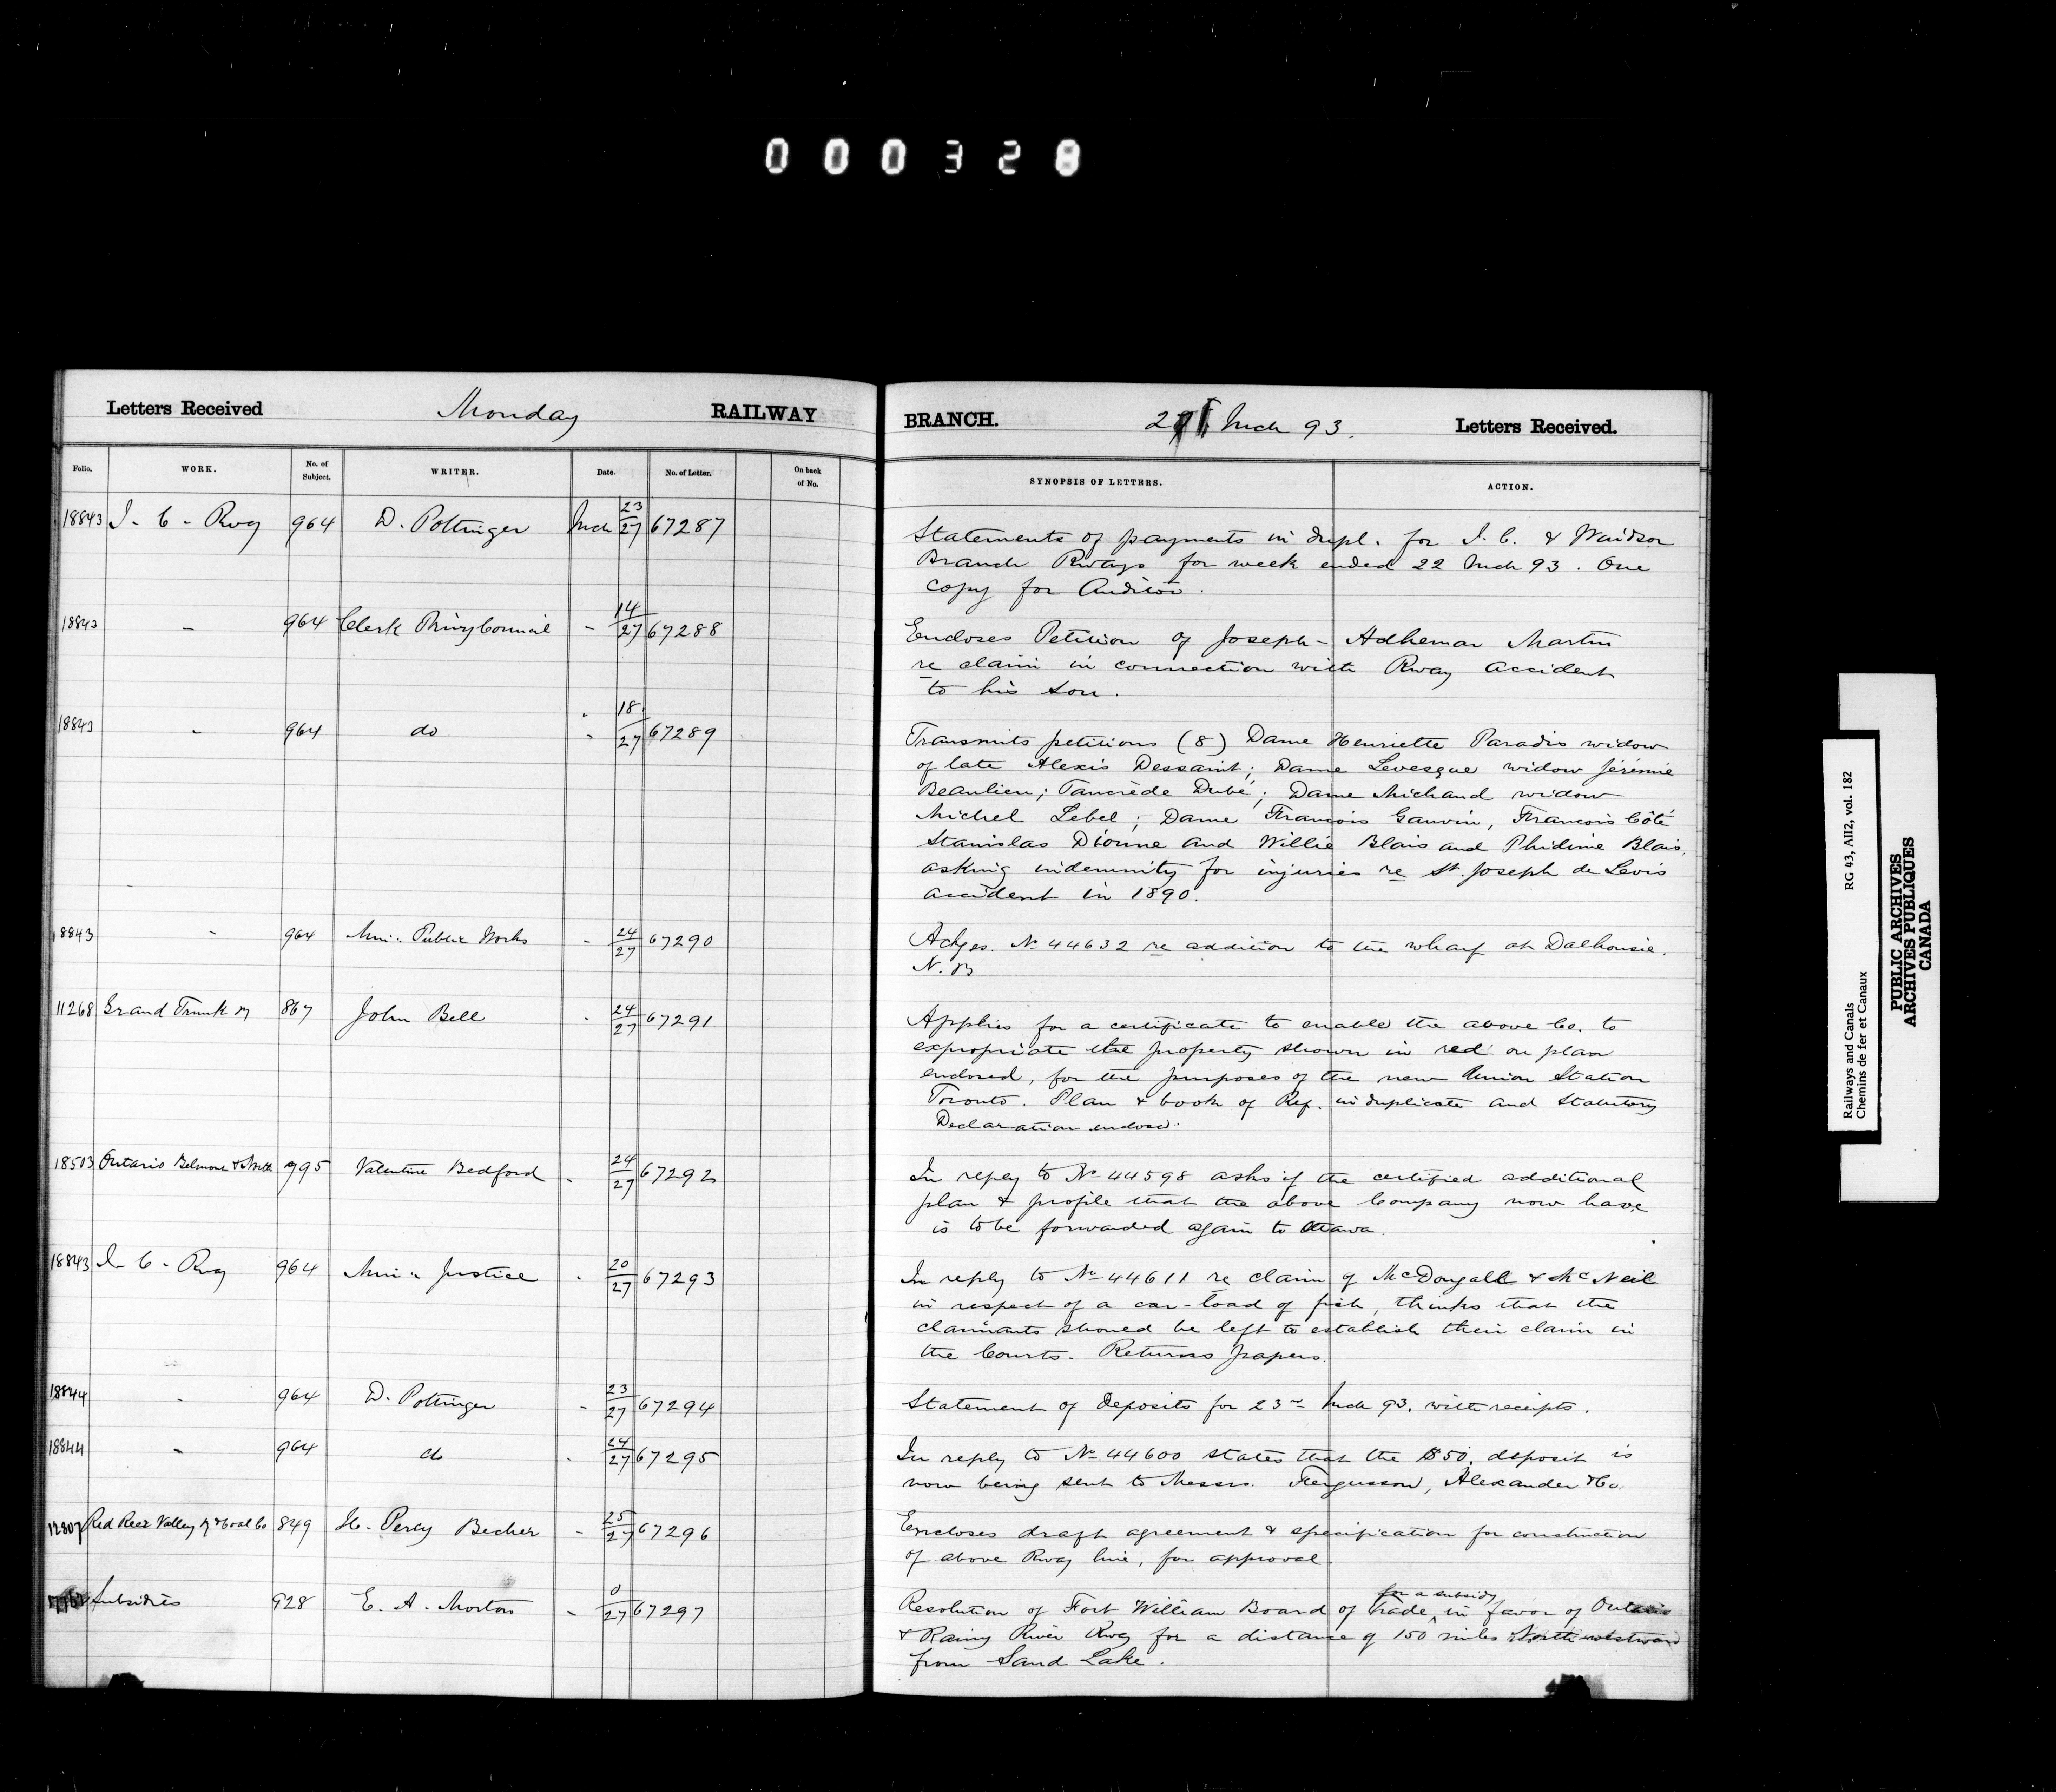 000328
Letters Received Monday RAILWAY
Folio. WORK. No. of Subject. WRITER. Date. No. of Letter. On back of No.
18843 I. C. Rwy 964 D. Pottinger Mch 23/27 67287
18843 " 964 Clerk Privy Council " 14/27 67288
18843 " 964 do " 18/27 67289
18843 " 964 Min. Public Works " 24/27 67290
11268 Grand Trunk Ry 867 John Bell " 24/27 67291
18503 Ontario Belmont & North Ry 795 Valentine Bedford " 24/27 67292
18843 I. C. Rwy 964 Min. Justice " 20/27 67293
18844 " 964 D. Pottinger " 23/27 67294
18844 " 964 do " 24/27 67295
12807 Red Deer Valley Ry & Coal Co 849 H. Percy Becher " 25/27 67296
Subsidies 928 E. A. Morton " 0/27 67297
BRANCH. 27 Mch 93. Letters Received.
SYNOPSIS OF LETTERS. ACTION.
Statements of payments in dupl. for I. C. & Windsor
Branch Rways for week ended 22 Mch 93. One
copy for Auditor.
Encloses Petition of Joseph-Adhemar Martin
re claim in connection with Rway accident
to his son.
Transmits petitions (8) Dame Henriette Paradis widow
of late Alexis Dessaint; Dame Levesque widow Jérémie
Beaulieu; Tancrède Dubé; Dame Michaud widow
Michel Lebel; Dame François Gauvin, Francois Côté
Stanislas Dionne and Willie Blais and Phidime Blais,
asking indemnity for injuries re St. Joseph de Levis
accident in 1890.
Ackges. No 44632 re addition to the wharf at Dalhousie.
N. B
Applies for a certificate to enable the above Co. to
expropriate the property shown in red on plan
enclosed, for the purposes of the new Union Station
Toronto. Plan & book of Ref. in duplicate and Statutory
Declaration enclosed.
In reply to No 44598 asks if the certified additional
plan & profile that the above Company now have
is to be forwarded again to Ottawa.
In reply to No 44611 re claim of McDougall & McNeil
in respect of a car-load of fish, thinks that the
claimants should be left to establish their claim in
the Courts. Returns papers.
Statement of Deposits for 23rd Mch 93. with receipts.
In reply to No 44600 states that the $50. deposit is
now being sent to Messrs. Fergusson, Alexander & Co.
Encloses draft agreement & specification for construction
of above Rway line, for approval.
Resolution of Fort William Board of Trade, for a subsidy in favor of Ontario
& Rainy River Rwy for a distance of 150 miles Northwestward
from Sand Lake.
Railways and Canals RG 43, AII2, vol. 182
Chemins de fer et Canaux
PUBLIC ARCHIVES
ARCHIVES PUBLIQUES
CANADA